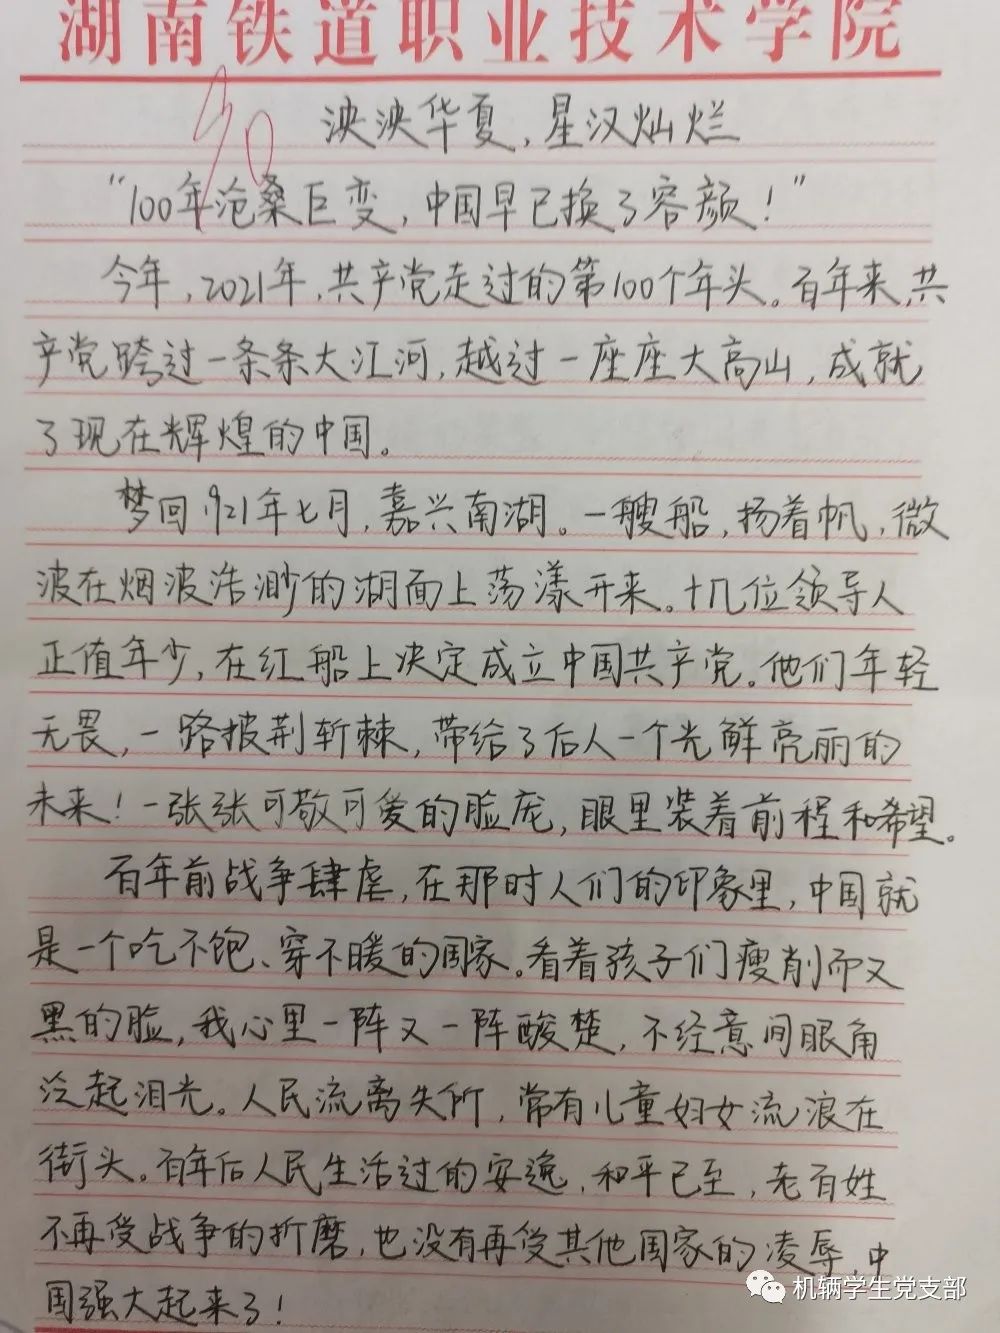 湖南铁道职业技术学院
90
泱泱华夏,星汉灿烂
“100年沧桑巨变,中国早已换了容颜!”
今年,2021年,共产党走过的第100个年头。百年来,共
产党跨过一条条大江河,越过一座座大高山,成就
了现在辉煌的中国。
梦回1921年七月,嘉兴南湖。一艘船,扬着帆,微
波在烟波浩渺的湖面上荡漾开来。十几位领导人
正值年少,在红船上决定成立中国共产党。他们年轻
无畏,一路披荆斩棘,带给了后人一个光鲜亮丽的
未来!一张张可敬可爱的脸庞,眼里装着前程和希望。
百年前战争肆虐,在那时人们的印象里,中国就
是一个吃不饱、穿不暖的国家。看着孩子们瘦削而又
黑的脸,我心里一阵又一阵酸楚,不经意间眼角
泛起泪光。人民流离失所,常有儿童妇女流浪在
街头。百年后人民生活过的安逸,和平已至,老百姓
不再受战争的折磨,也没有再受其他国家的凌辱,中
国强大起来了!
机辆学生党支部